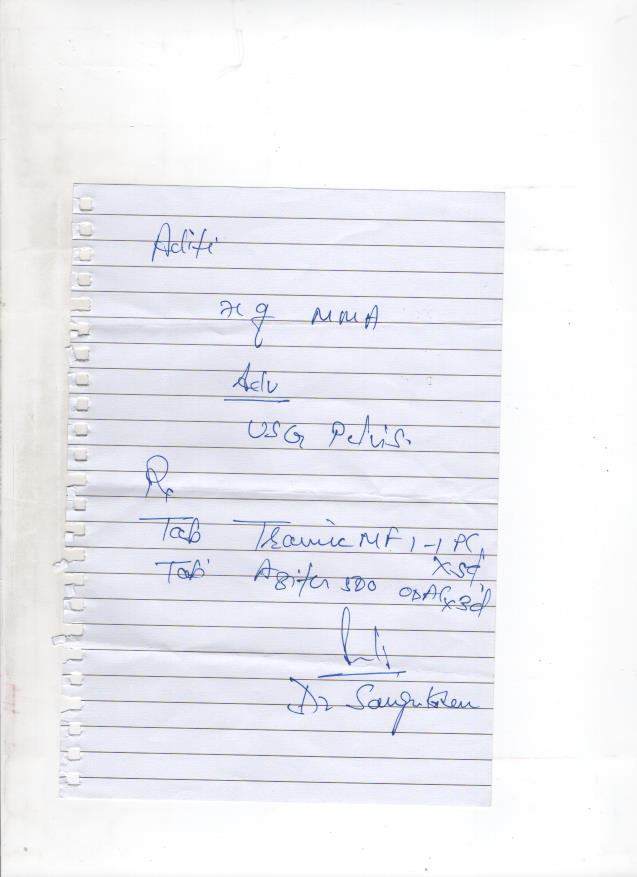 Aditi
H/o MMA
Adv
USG Pelvis.
Rx
Tab Tranic MF 1-1 PC x5d
Tab Azifer 500 OD AC x3d
Dr